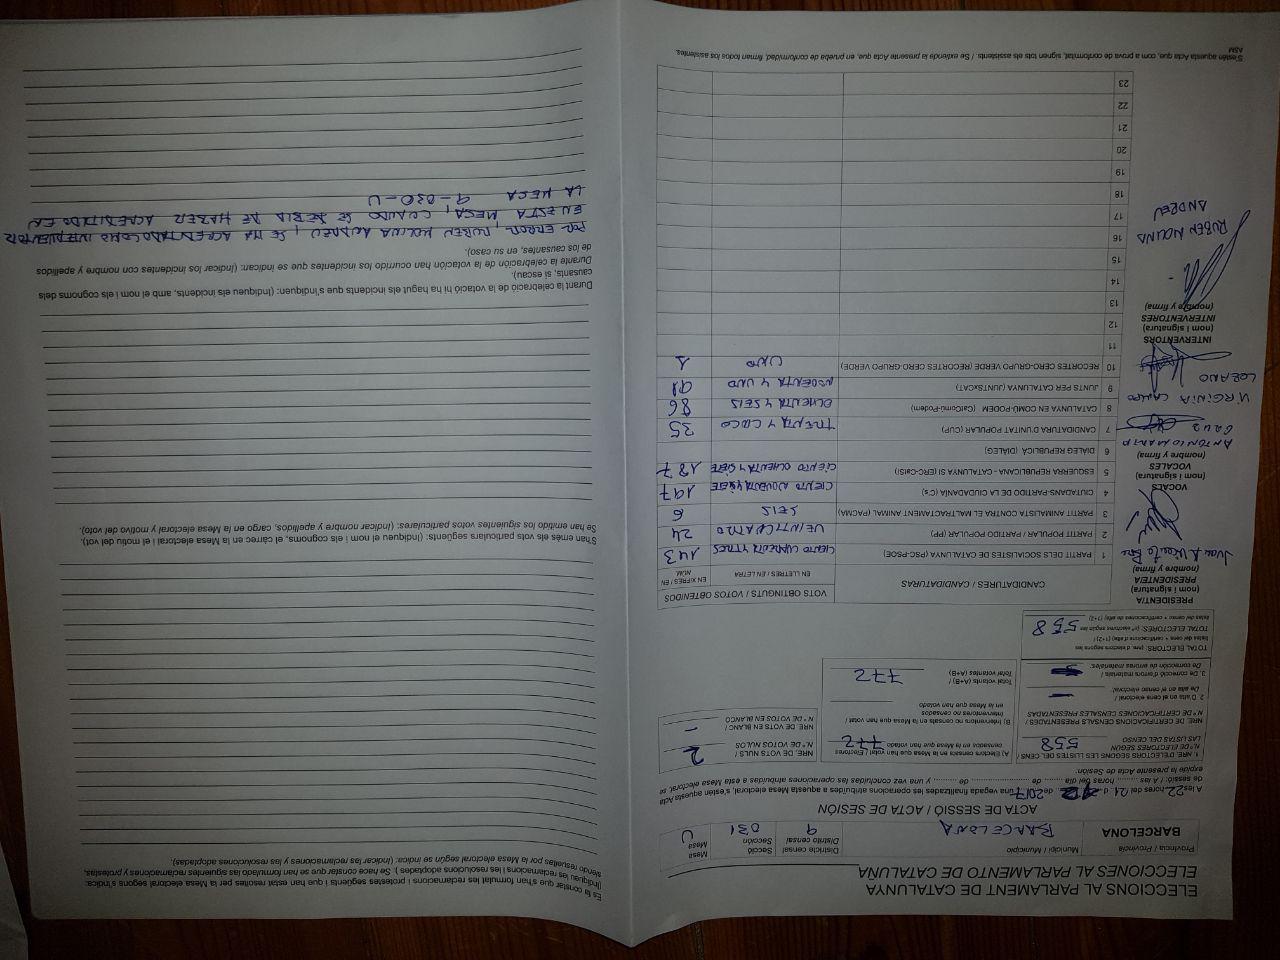 ELECCIONS AL PARLAMENT DE CATALUNYA
ELECCIONES AL PARLAMENTO DE CATALUÑA
Província / Provincia
BARCELONA
Municipi / Municipio
BARCELONA
Districte censal
Distrito censal
9
Secció
Sección
031
Mesa
Mesa
U
ACTA DE SESSIÓ / ACTA DE SESIÓN
A les 22 hores del 21 d de 2017 una vegada finalitzades les operacions atribuïdes a aquesta Mesa electoral, s'estén aquesta Acta
de sessió: / A las ........ horas del día ........ de ........ de ........ y una vez concluidas las operaciones atribuidas a esta Mesa electoral, se
expide la presente Acta de Sesión:
1. NRE. D'ELECTORS SEGONS LES LLISTES DEL CENS /
N.º DE ELECTORES SEGÚN
LAS LISTAS DEL CENSO
558
NRE. DE CERTIFICACIONS CENSALS PRESENTADES /
N.º DE CERTIFICACIONES CENSALES PRESENTADAS
2. D'alta en el cens electoral /
De alta en el censo electoral:
—
3. De correcció d'errors materials /
De corrección de errores materiales:
TOTAL ELECTORS: (nre. d'electors segons les
llistes del cens + certificacions d'alta) (1+2) /
TOTAL ELECTORES: (nº electores según las
listas del censo + certificaciones de alta) (1+2)
558
A) Electors censats en la Mesa que han votat / Electores
censados en la Mesa que han votado
772
B) Interventors no censats en la Mesa que han votat /
Interventores no censados
en la Mesa que han votado
Total votants (A+B) /
Total votantes (A+B)
772
NRE. DE VOTS NULS /
N.º DE VOTOS NULOS
2
NRE. DE VOTS EN BLANC /
N.º DE VOTOS EN BLANCO
—
CANDIDATURES / CANDIDATURAS
VOTS OBTINGUTS / VOTOS OBTENIDOS
EN LLETRES / EN LETRA
EN XIFRES / EN NÚM.
1 PARTIT DELS SOCIALISTES DE CATALUNYA (PSC-PSOE) CIENTO CUARENTA Y TRES 143
2 PARTIT POPULAR / PARTIDO POPULAR (PP) VEINTICUATRO 24
3 PARTIT ANIMALISTA CONTRA EL MALTRACTAMENT ANIMAL (PACMA) SEIS 6
4 CIUTADANS-PARTIDO DE LA CIUDADANÍA (C's) CIENTO NOVENTA Y SIETE 197
5 ESQUERRA REPUBLICANA - CATALUNYA SÍ (ERC-CatSí) CIENTO OCHENTA Y SIETE 187
6 DIÀLEG REPUBLICÀ (DIÀLEG)
7 CANDIDATURA D'UNITAT POPULAR (CUP) TREINTA Y CINCO 35
8 CATALUNYA EN COMÚ-PODEM (CatComú-Podem) OCHENTA Y SEIS 86
9 JUNTS PER CATALUNYA (JUNTSxCAT) NOVENTA Y UNO 91
10 RECORTES CERO-GRUPO VERDE (RECORTES CERO-GRUPO VERDE) UNO 1
11
12
13
14
15
16
17
18
19
20
21
22
23
PRESIDENT/A
(nom i signatura)
PRESIDENTE/A
(nombre y firma)
VOCALS
(nom i signatura)
VOCALES
(nombre y firma)
ANTONIO MARTA
CRUZ
VIRGINIA CAMPO
LOZANO
INTERVENTORS
(nom i signatura)
INTERVENTORES
(nombre y firma)
RUBEN MOLINA
ANDREU
S'estén aquesta Acta que, com a prova de conformitat, signen tots els assistents. / Se extiende la presente Acta que, en prueba de conformidad, firman todos los asistentes.
ASM
Es fa constar que s'han formulat les reclamacions i protestes següents i que han estat resoltes per la Mesa electoral segons s'indica:
(Indiqueu les reclamacions i les resolucions adoptades). Se hace constar que se han formulado las siguientes reclamaciones y protestas,
siendo resueltas por la Mesa electoral según se indica: (Indicar las reclamaciones y las resoluciones adoptadas).
S'han emès els vots particulars següents: (Indiqueu el nom i els cognoms, el càrrec en la Mesa electoral i el motiu del vot).
Se han emitido los siguientes votos particulares: (Indicar nombre y apellidos, cargo en la Mesa electoral y motivo del voto).
Durant la celebració de la votació hi ha hagut els incidents que s'indiquen: (Indiqueu els incidents, amb el nom i els cognoms dels
causants, si escau).
Durante la celebración de la votación han ocurrido los incidentes que se indican: (Indicar los incidentes con nombre y apellidos
de los causantes, en su caso).
POR ERROR, RUBEN MOLINA ANDREU, SE HA ACREDITADO COMO INTERVENTOR
EN ESTA MESA, CUANDO SE DEBIA DE HABER ACREDITADO EN
LA MESA 9-030-U